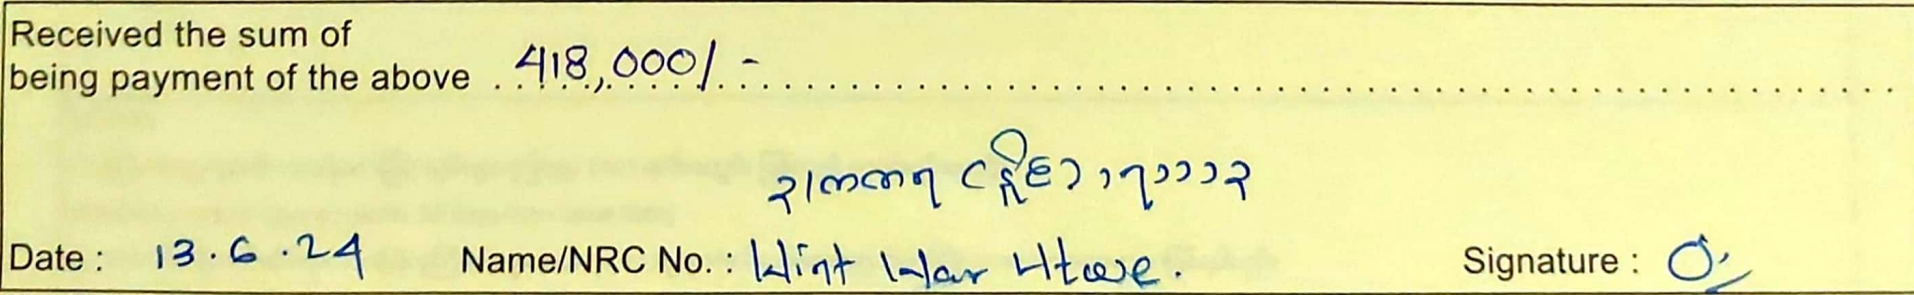 Received the sum of
being payment of the above 418,000/-
Date : 13.6.24 Name/NRC No. : Wint War Htwe. Signature :